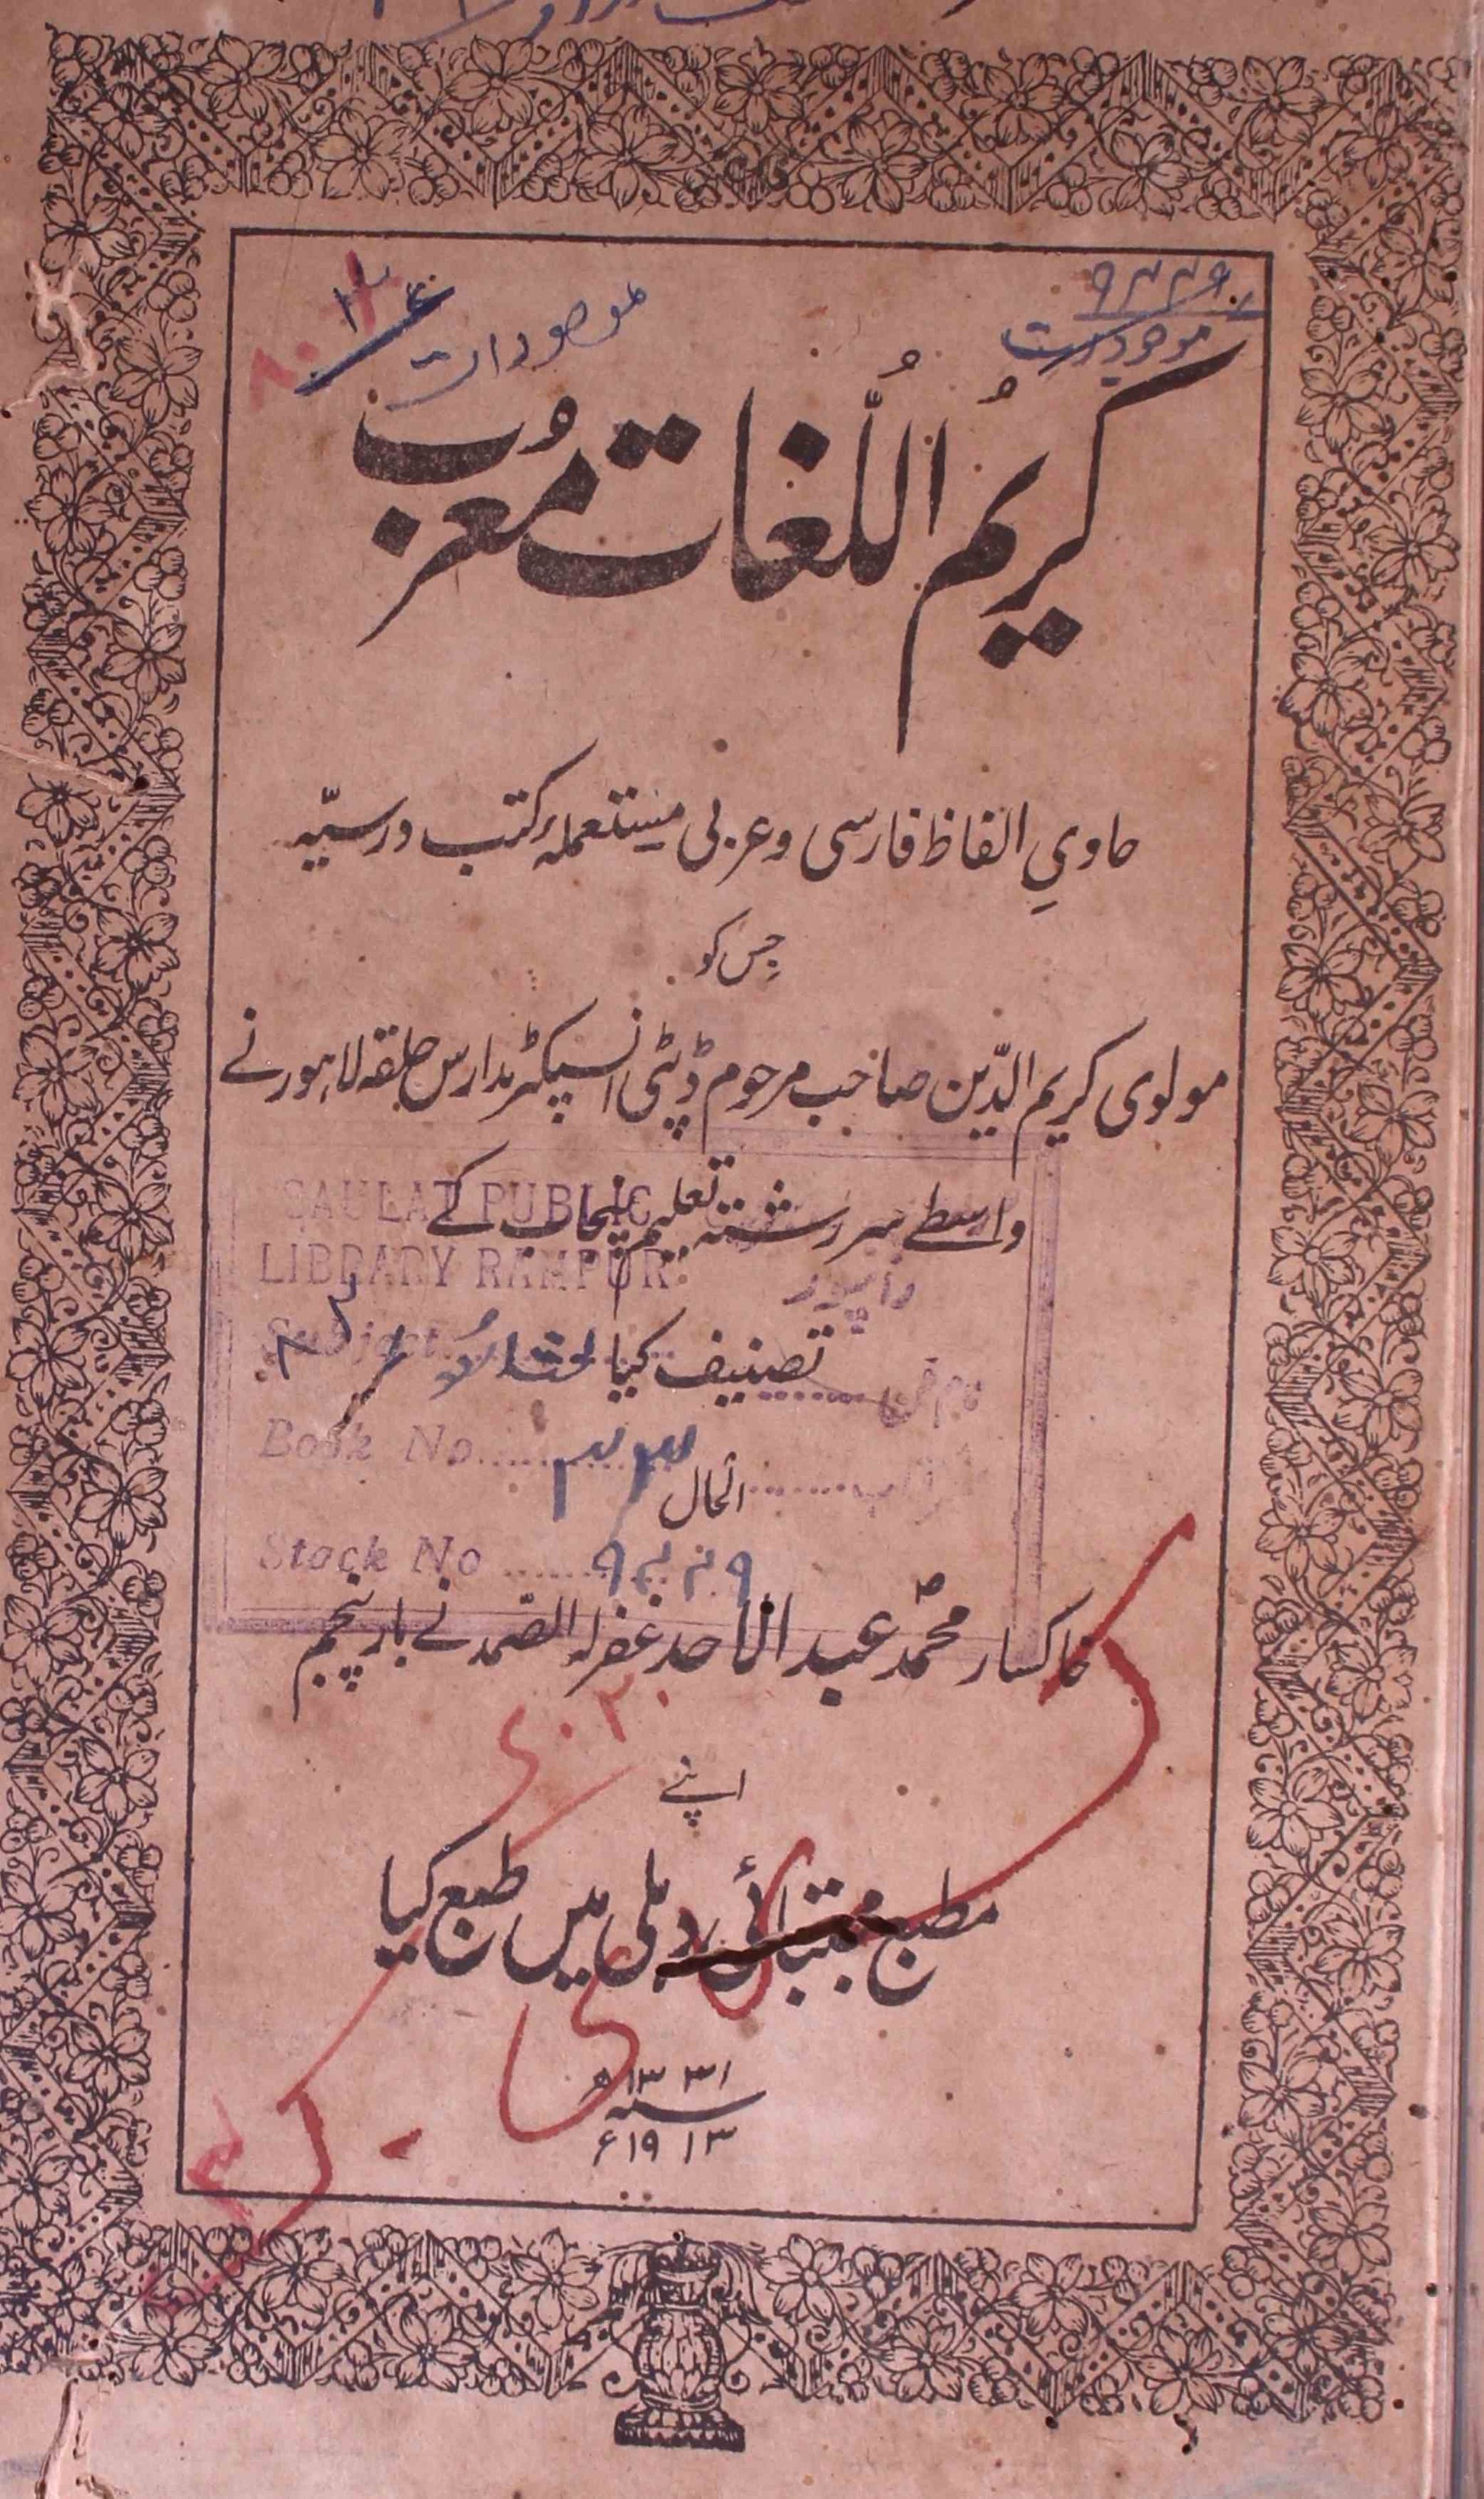 ۹۲۲۹
موجودات
كريمُ اللُّغات مُعْرَب
حاویِ الفاظ فارسی و عربی مستعملۂ کتب درسیّہ
جِس کو
مولوی کریم الدّین صاحب مرحوم ڈپٹی انسپکٹر مدارس حلقہ لاہور نے
واسطے سررشتہ تعلیم پنجاب کے
SAULAT PUBLIC
LIBRARY RAMPUR
رامپور
تصنیف کیا
Subject
Book No
الحال
Stock No ۹۲۲۹
خاکسار محمّد عبد الاحد غفرلہ الصّمد نے بار پنجم
اپنے
مطبع مجتبائی دہلی میں طبع کیا
۱۳۳۱ھ
سنہ
۱۹۱۳ء